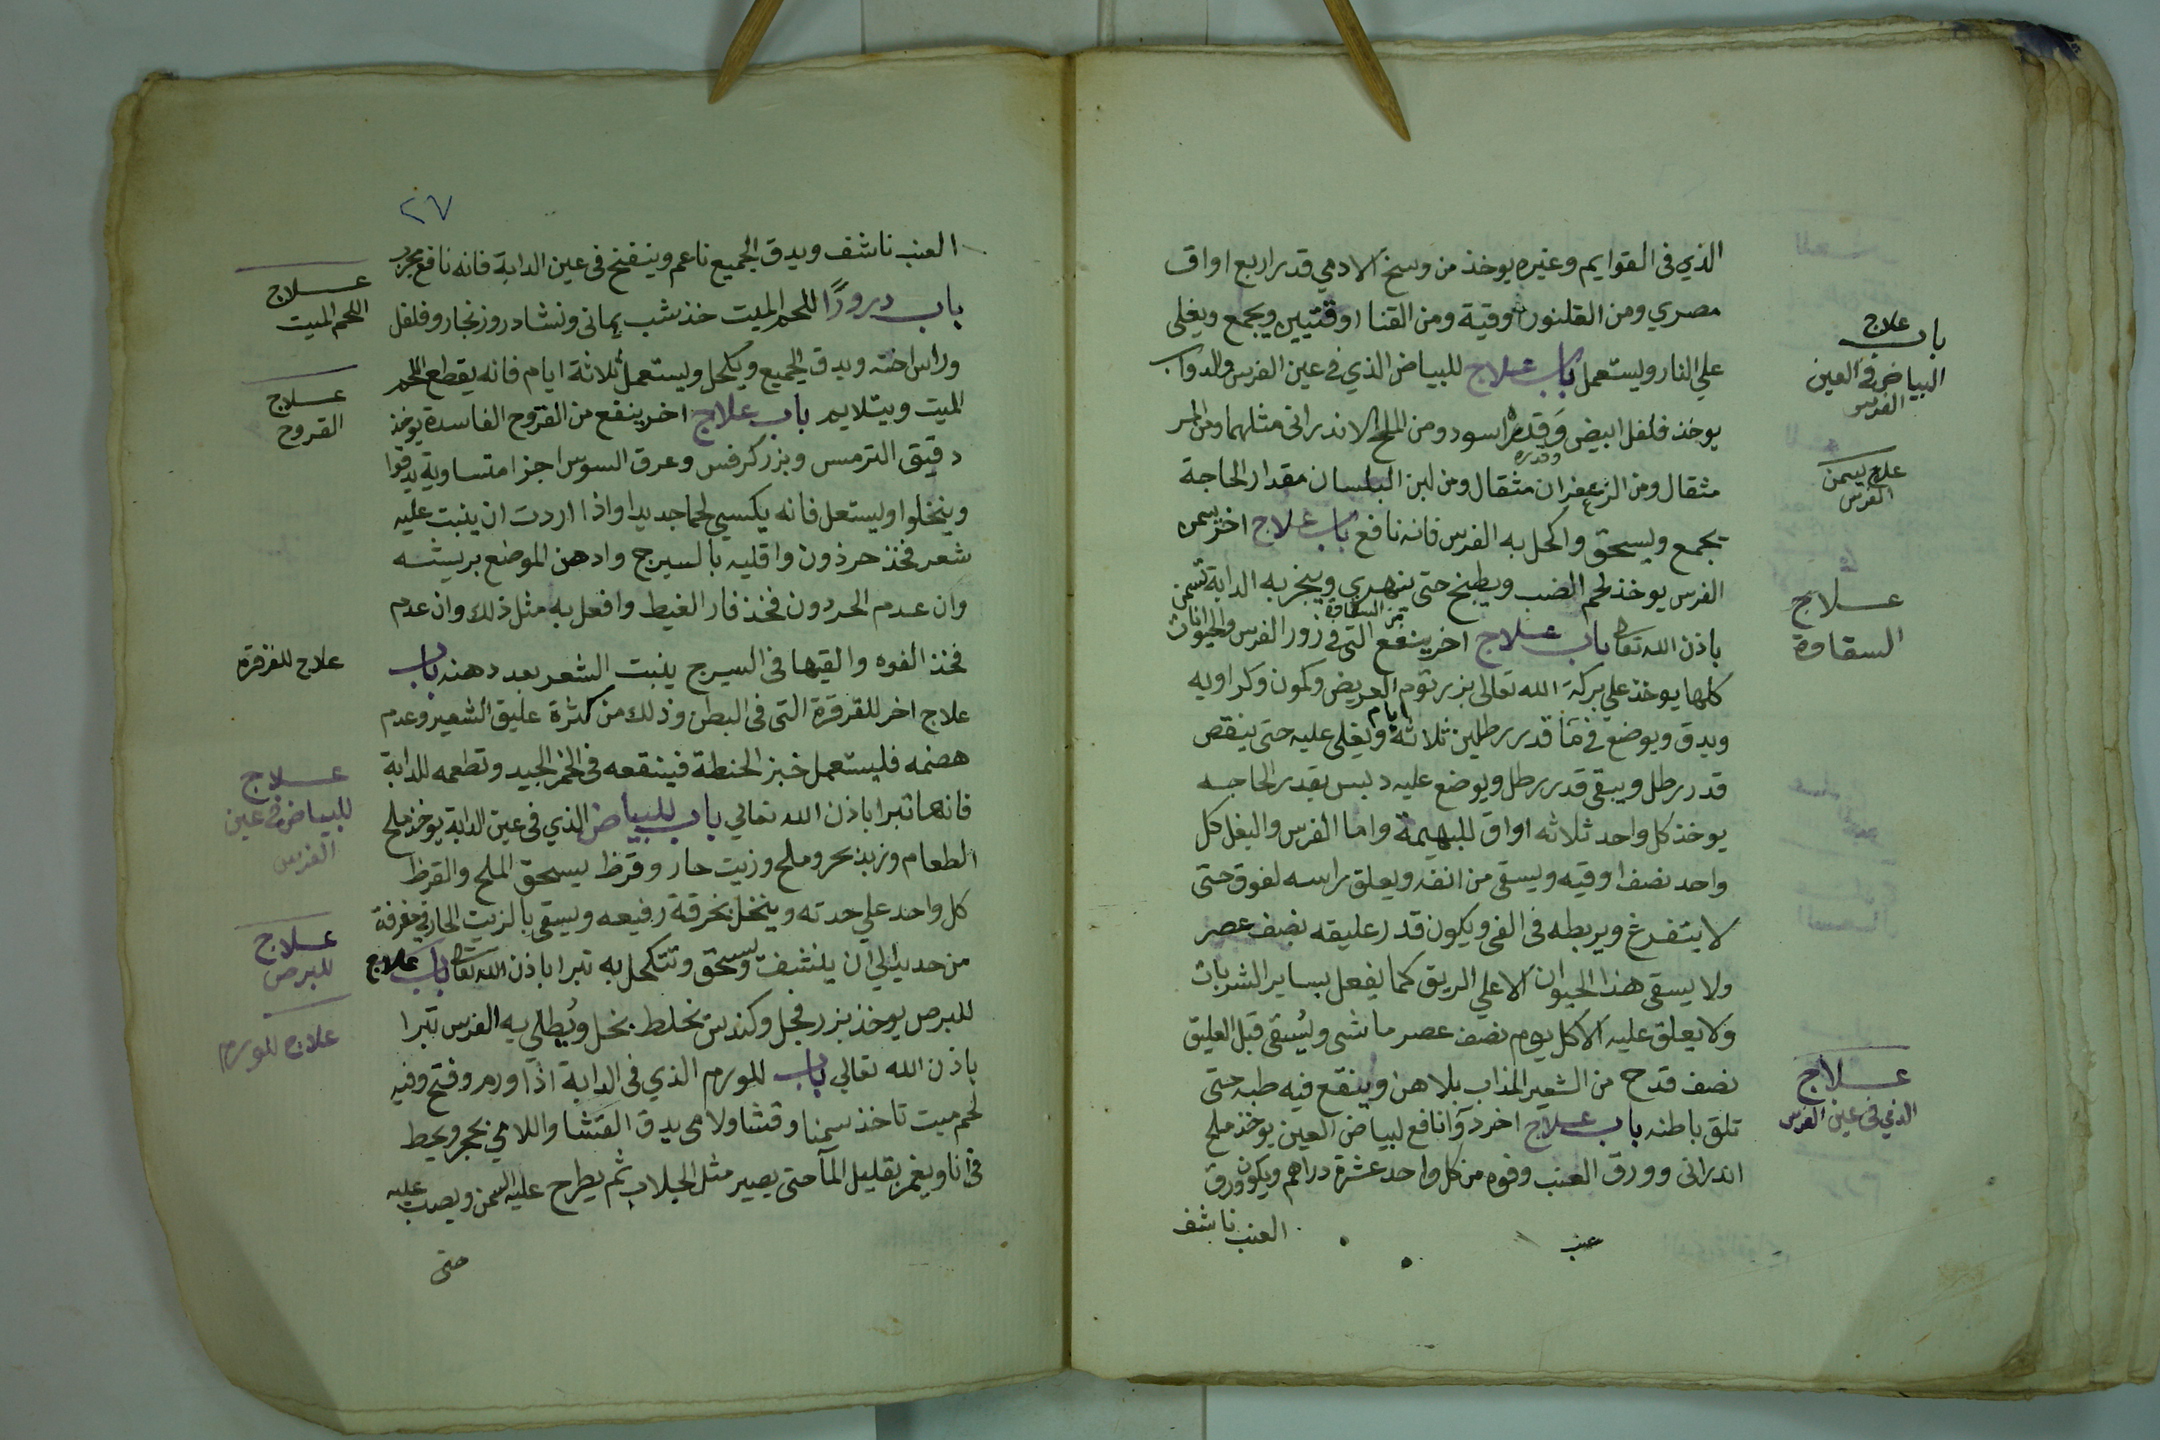 الذي في القوايم وغيره يوخذ من وسخ الادمي قدر اربع اواق
مصري ومن القلفون اوقية ومن القنا اوقتيين ويجمع ويغلي
علي النار وليستعمل باب علاج للبياض الذي في عين الفرس والدواب
يوخذ فلفل ابيض وقدره اسود ومن الملح الاندراني مثلهما ومن المر
وقدره
مثقال ومن الزعفران مثقال ومن لبن البلسان مقدار الحاجة
يجمع ويسحق واكحل به الفرس فانه نافع باب علاج اخر يسمن
الفرس يوخذ لحم الضب ويطبخ حتي ينهري ويبخر به الدابة تسمن
باذن الله تعالى باب علاج اخر ينفع من السقاوة التي في زور الفرس والحيوانات
كلها يوخذ علي بركة الله تعالى بزر ثوم العريض وكمون وكراويه
ويدق ويوضع في ما قدر رطلين ثلاثة ايام ويغلي عليه حتى ينقص
قدر رطل ويبقي قدر رطل ويوضع عليه دبس بقدر الحاجه
يوخذ كل واحد ثلاثه اواق للبهيمة واما الفرس والبغل كل
واحد نصف اوقيه ويسقي من انفه ويعلق راسه لفوق حتى
لا يتفرغ ويربطه في الفي ويكون قدر عليقه نصف عصر
ولا يسقي هذا الحيوان الا علي الريق كما يفعل بساير الشربات
ولا يعلق عليه الا كل يوم نصف عصر ماشي ويسقي قبل العليق
نصف قدح من الشعير المذاب بلاهن وينقع فيه طبه حتى
تلق باطنه باب علاج اخر دوا نافع لبياض العين يوخذ ملح
اندراني وورق العنب وفوه من كل واحد عشرة دراهم ويكون ورق
العنب ناشف
باب علاج
البياض في العين
الفرس
علاج يسمن
الفرس
علاج
السقاوة
علاج
الذي في عين الفرس
٢٧
العنب ناشف ويدق الجميع ناعم وينفخ في عين الدابة فانه نافع مجرب
باب درورًا اللحم الميت خذ شب يماني ونشادر وزنجار وفلفل
وراس اخته ويدق الجميع ويكحل وليستعمل ثلاثة ايام فانه يقطع اللحم
الميت ويتلايم باب علاج اخر ينفع من القروح الفاسدة يوخذ
دقيق الترمس وبزر كرفس وعرق السوس اجزا متساوية يدقوا
وينخلوا وليستعمل فانه يكسي لحما جديدا واذا اردت ان ينبت عليه
شعر فخذ حرذون واقليه بالسيرج وادهن الموضع بريشه
وان عدم الحردون فخذ فار الغيط وافعل به مثل ذلك وان عدم
فخذ الفوه والقيها في السيرج ينبت الشعر بعد دهنه باب
علاج اخر للقرقرة التي في البطن وذلك من كثرة عليق الشعير وعدم
هضمه فليستعمل خبز الحنطة فينقعه في الخمر الجيد وتطعمه للدابة
فانها تبرا باذن الله تعالي باب للبياض الذي في عين الدابة يوخذ ملح
الطعام وزبد بحر وملح وزيت حار وقرظ يسحق الملح والقرظ
كل واحد علي حدته وينخل بخرقة رفيعه ويسقي بالزيت الحار في مغرفة
من حديد الي ان ينشف ويسحق وتتكحل به تبرا باذن الله تعالى باب علاج
للبرص يوخذ بزر فجل وكندس يخلط بخل ويُطلي به الفرس تبرا
باذن الله تعالي باب للورم الذي في الدابة اذا ورم وفتح وفيه
لحم ميت تاخذ سمنا وقثا ولامي يدق القثا واللامي بحجر ويحط
في انا ويغمر بقليل الماء حتى يصير مثل الجلاب ثم يطرح عليه السمن ويصب عليه
حتى
علاج
اللحم الميت
علاج
القروح
علاج للقرقرة
علاج
للبياض في عين
الفرس
علاج
للبرص
علاج للورم